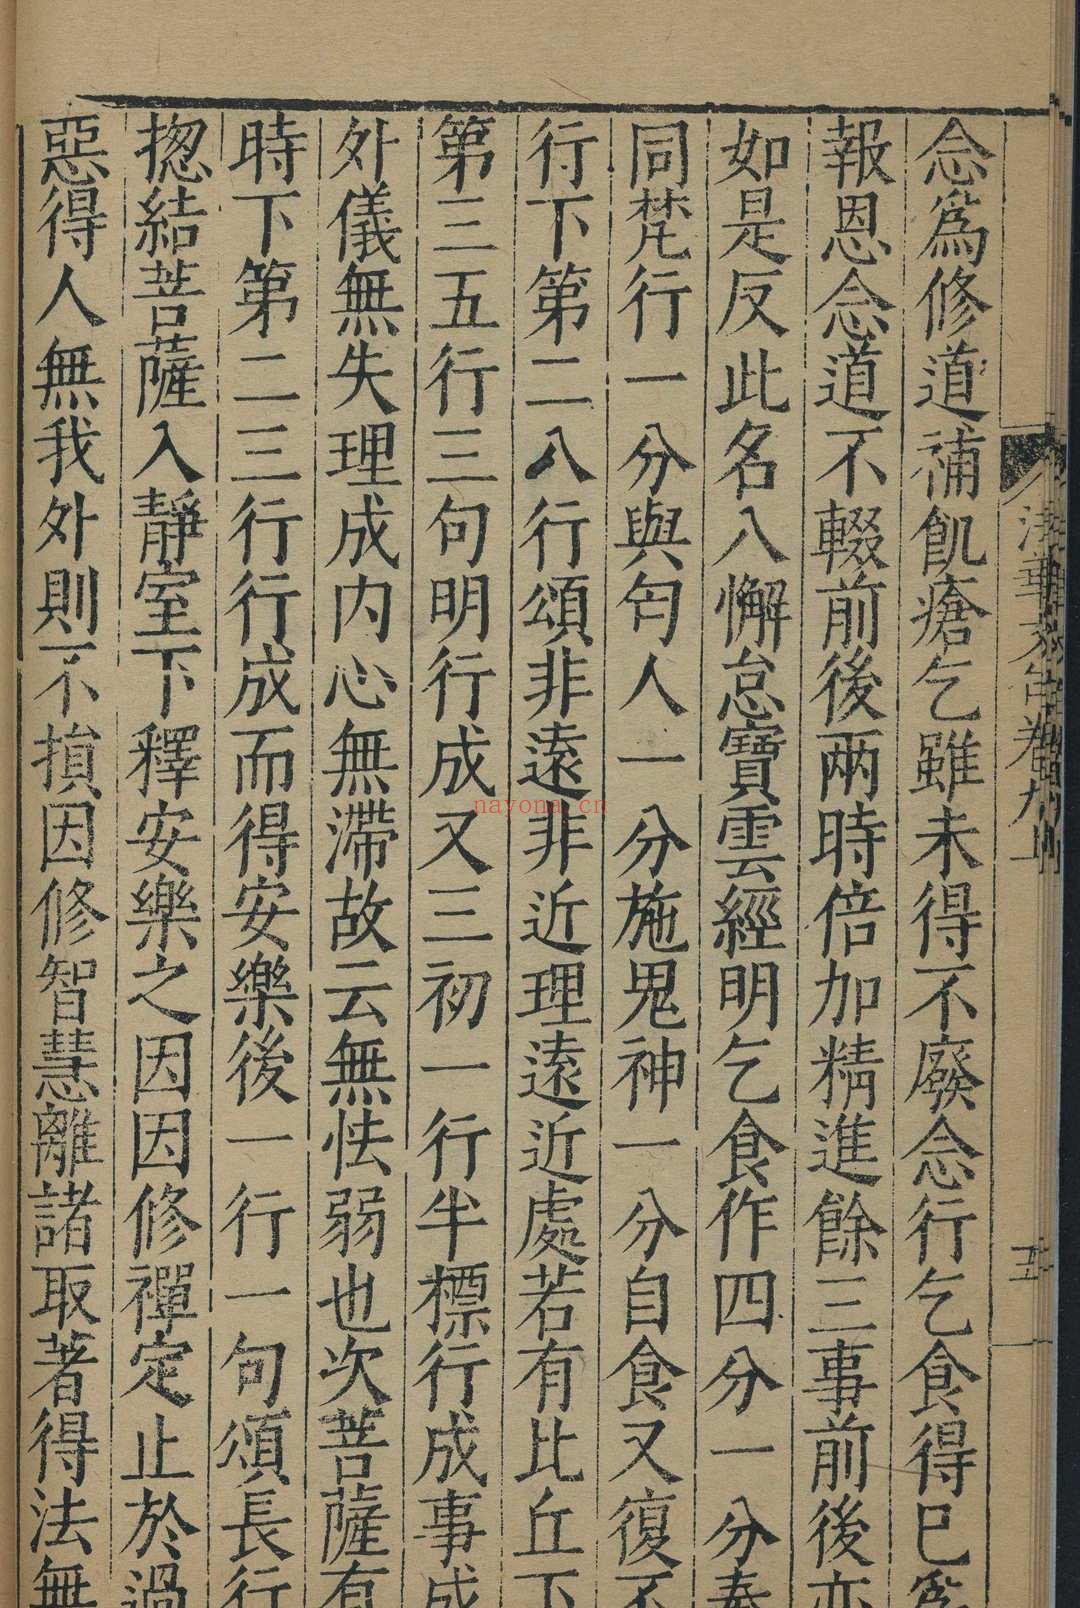 法華文句卷九上
五
念爲修道補飢瘡乞雖未得不廢念行乞食得已爲
報恩念道不輟前後兩時倍加精進餘三事前後亦
如是反此名八懈怠寶雲經明乞食作四分一分奉
同梵行一分與匄人一分施鬼神一分自食又復不
行下第二八行頌非遠非近理遠近處若有比丘下
第三五行三句明行成又三初一行半標行成事成
外儀無失理成内心無滯故云無怯弱也次菩薩有
時下第二三行行成而得安樂後一行一句頌長行
揔結菩薩入靜室下釋安樂之因因修禪定止於過
惡得人無我外則不損因修智慧離諸取著得法無
nayona.cn